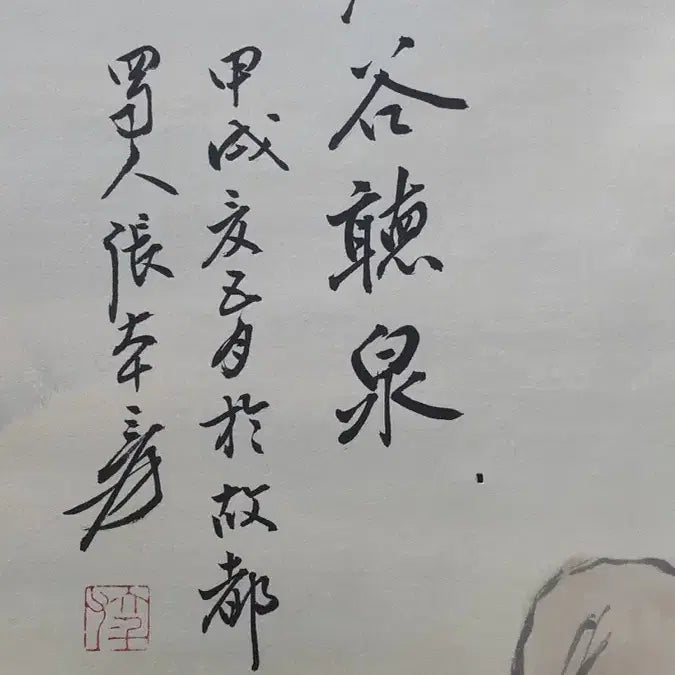 谷聽泉
甲戌夏五月於故都
蜀人張大千爰